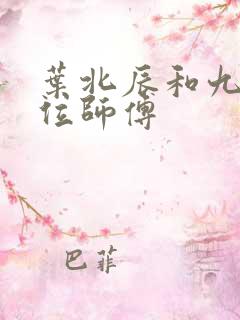 葉北辰和九
位師傅
巴菲